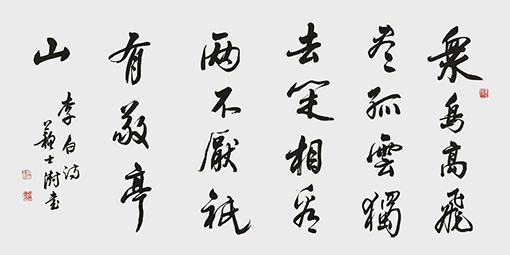 衆鳥高飛
盡孤雲獨
去閑相看
兩不厭祇
有敬亭
山
李白詩
蘇士澍書